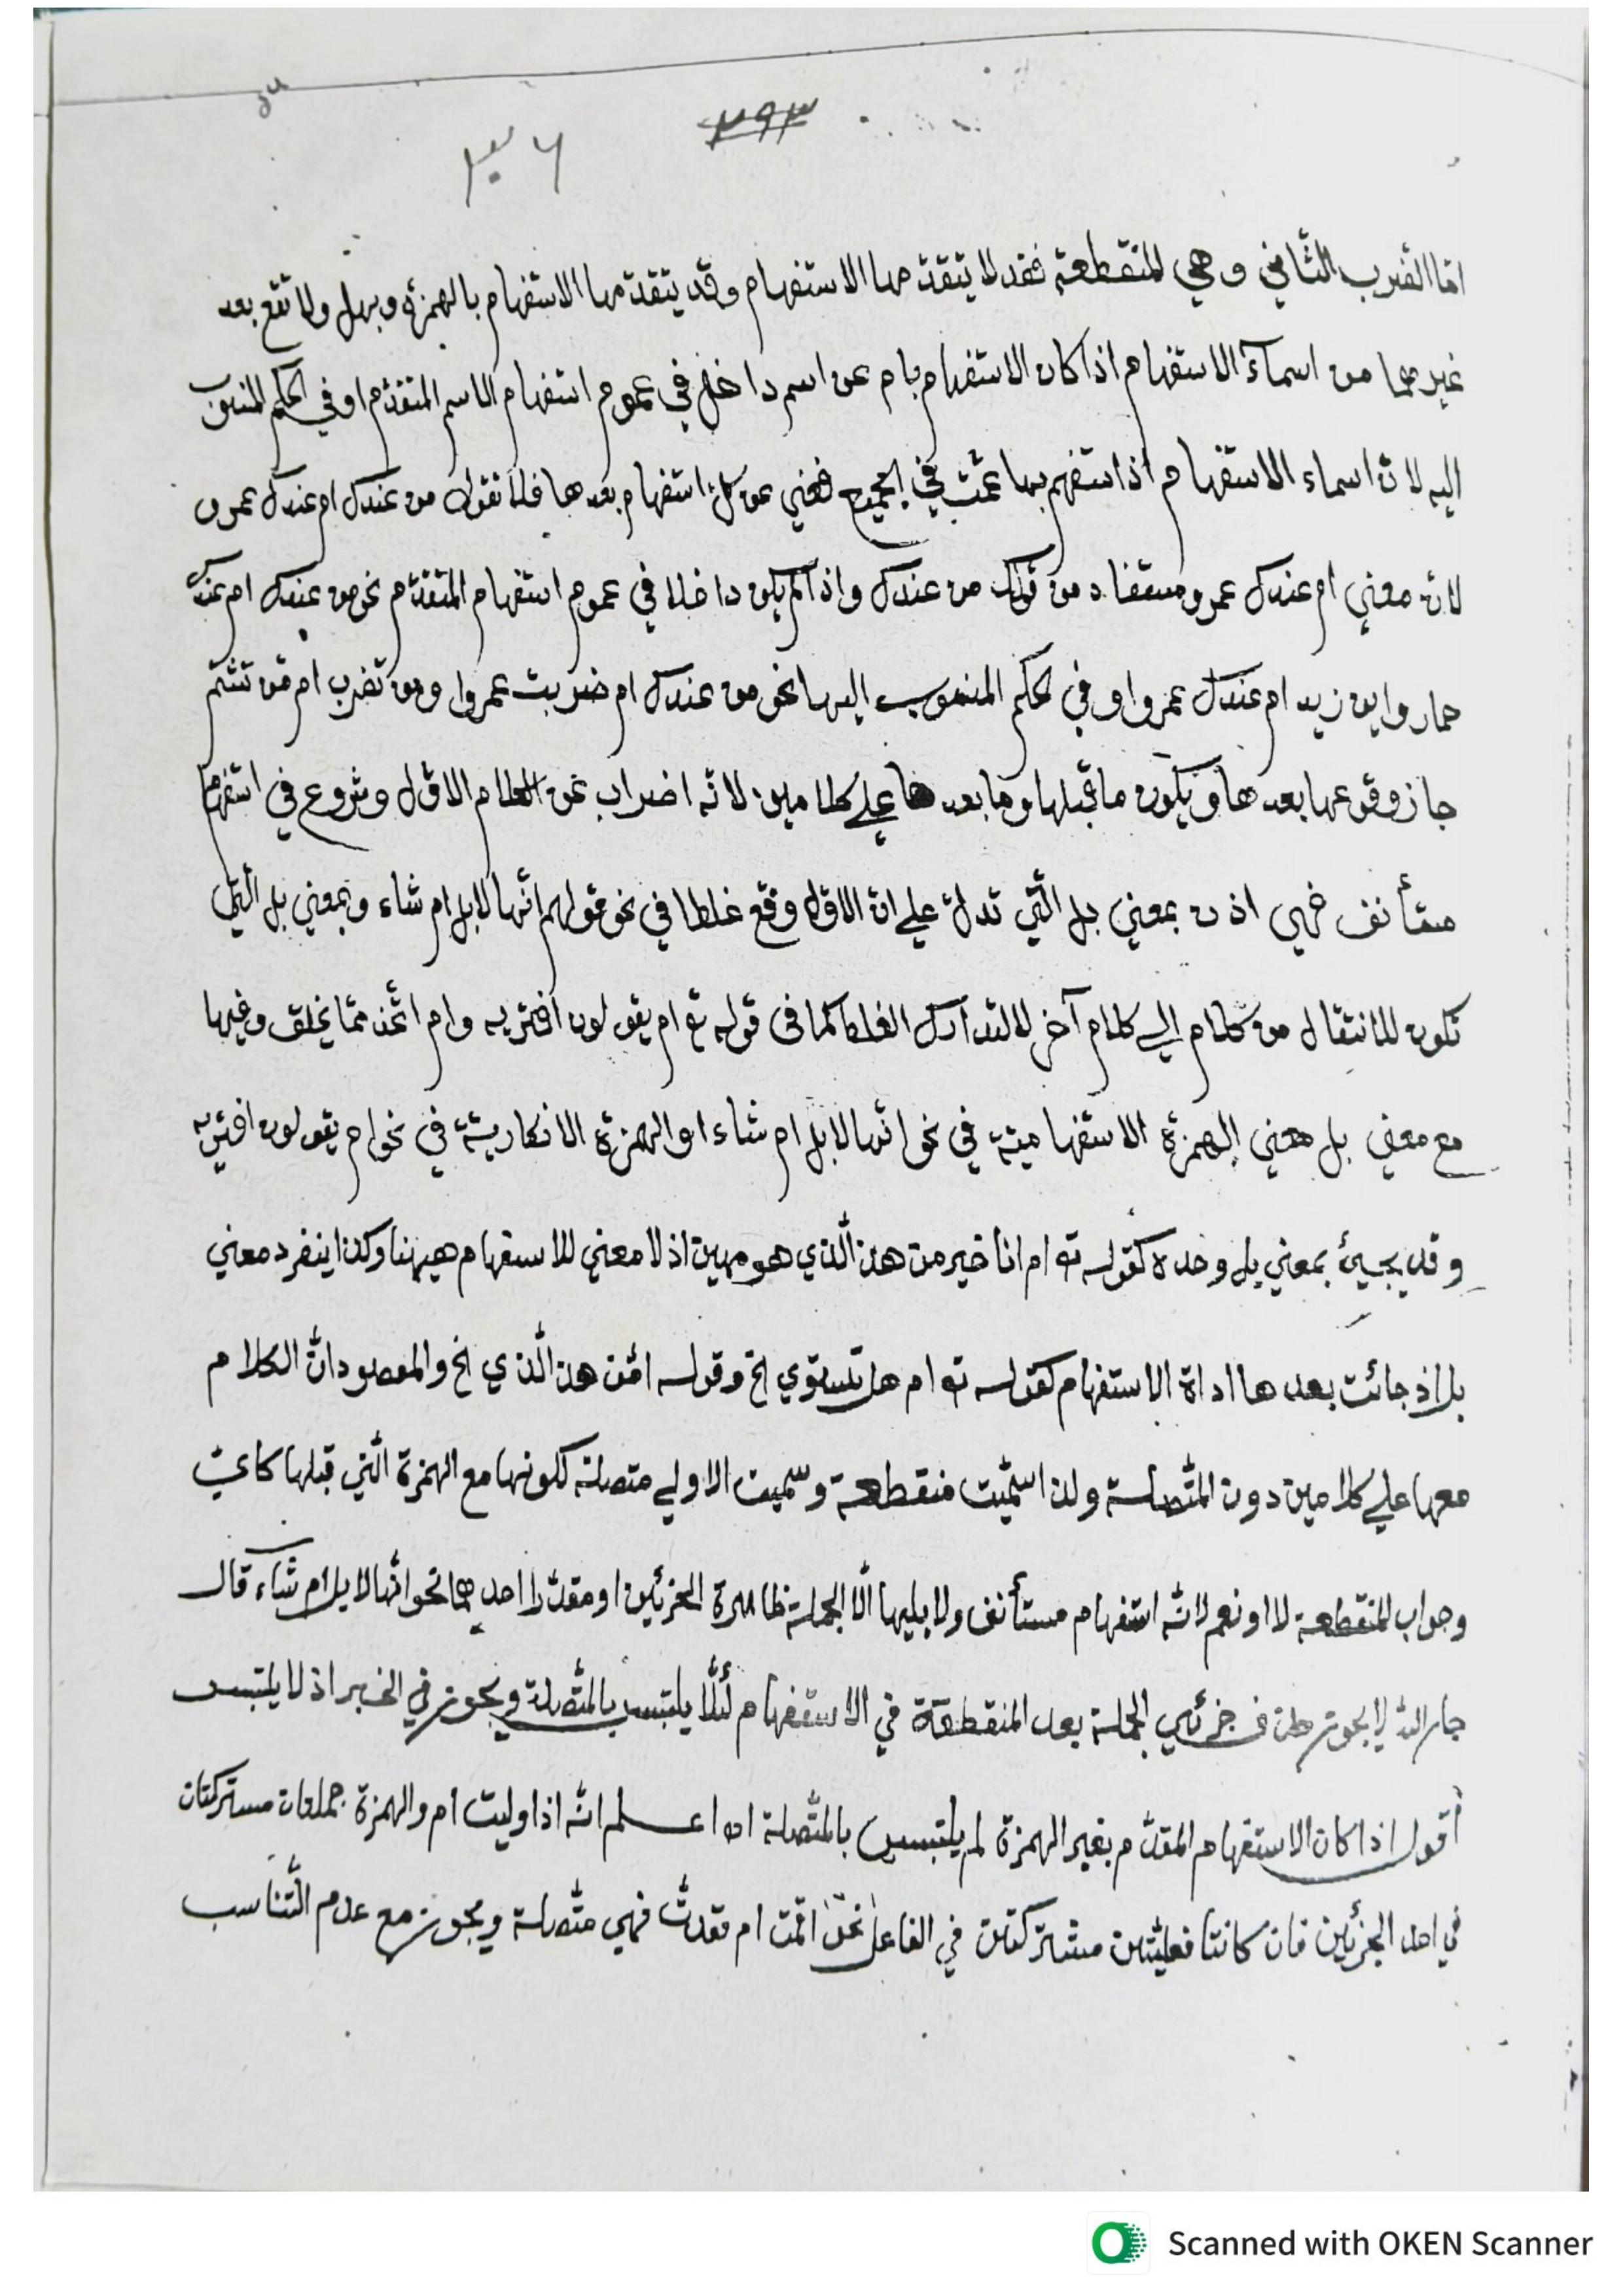 ٢٩٣
٣٠٦
امّا الضرب الثّاني وهي المنقطعة فقد لا يتقدّمها الاستفهام وقد يتقدّمها الاستفهام بالهمزة وبهل ولا تقع بعد
غيرهما من اسمآء الاستفهام اذا كان الاستفهام بام عن اسم داخل في عموم استفهام الاسم المتقدّم او في الحكم المنسوب
اليه لانّ اسماء الاستفهام اذا استفهم بها عمّت في الجميع فغني عن كلّ استفهام بعدها فلا تقول من عندك ام عندك عمرو
لانّ معني ام عندك عمرو مستفاد من قولك من عندك واذا لم يكن داخلا في عموم استفهام المتقدّم نحو من عندك ام عندك
حمار واين زيد ام عندك عمرو او في الحكم المنسوب اليها نحو من عندك ام ضربت عمروا ومن تضرب ام من تشتم
جاز وقوعها بعدها ويكون ما قبلها وما بعدها علي كلامين لانّه اضراب عن الكلام الاوّل وشروع في استفهام
مستأنف فهي اذن بمعني بل الّتي تدلّ علي انّ الاوّل وقع غلطا في نحو قولهم انّها لابل ام شاء وبمعني بل الّتي
تكون للانتقال من كلام الي كلام آخر لا لتدارك الغلط كما في قوله تع ام يقولون افتريه وام اتّخذ ممّا يخلق وفيها
مع معني بل معني الهمزة الاستفهاميّة في نحو انّها لابل ام شاء او الهمزة الانكاريّة في نحو ام يقولون افتريه
وقد يجيئ بمعني بل وحده كقوله تع ام انا خير من هذا الّذي هو مهين اذ لا معني للاستفهام هيهنا وكذا ينفرد معني
بل اذ جائت بعدها اداة الاستفهام كقوله تع ام هل تستوي الخ وقوله امّن هذا الّذي الخ والمقصود انّ الكلام
معها علي كلامين دون المتّصلة ولذا سمّيت منقطعة وسمّيت الاولي متصلة لكونها مع الهمزة الّتي قبلها كايّ
وجواب المنقطعة لا او نعم لانّه استفهام مستأنف ولا يليها الّا الجملة ظاهرة الجزئين او مقدّرا احدهما نحو انّها لابل ام شآء قال
جار الله لا يجوز حذف جزئي الجملة بعد المنقطعة في الاستفهام لئلّا يلتبس بالمتّصلة ويجوز في الخبر اذ لا يلتبس
أقول اذا كان الاستفهام المقدّم بغير الهمزة لم يلتبس بالمتّصلة اه اعلم انّه اذا وليت ام والهمزة جملتان مشتركتان
في احد الجزئين فان كانتا فعليّتين مشتركتين في الفاعل نحو اقمت ام قعدت فهي متّصلة ويجوز مع عدم التّناسب
Scanned with OKEN Scanner